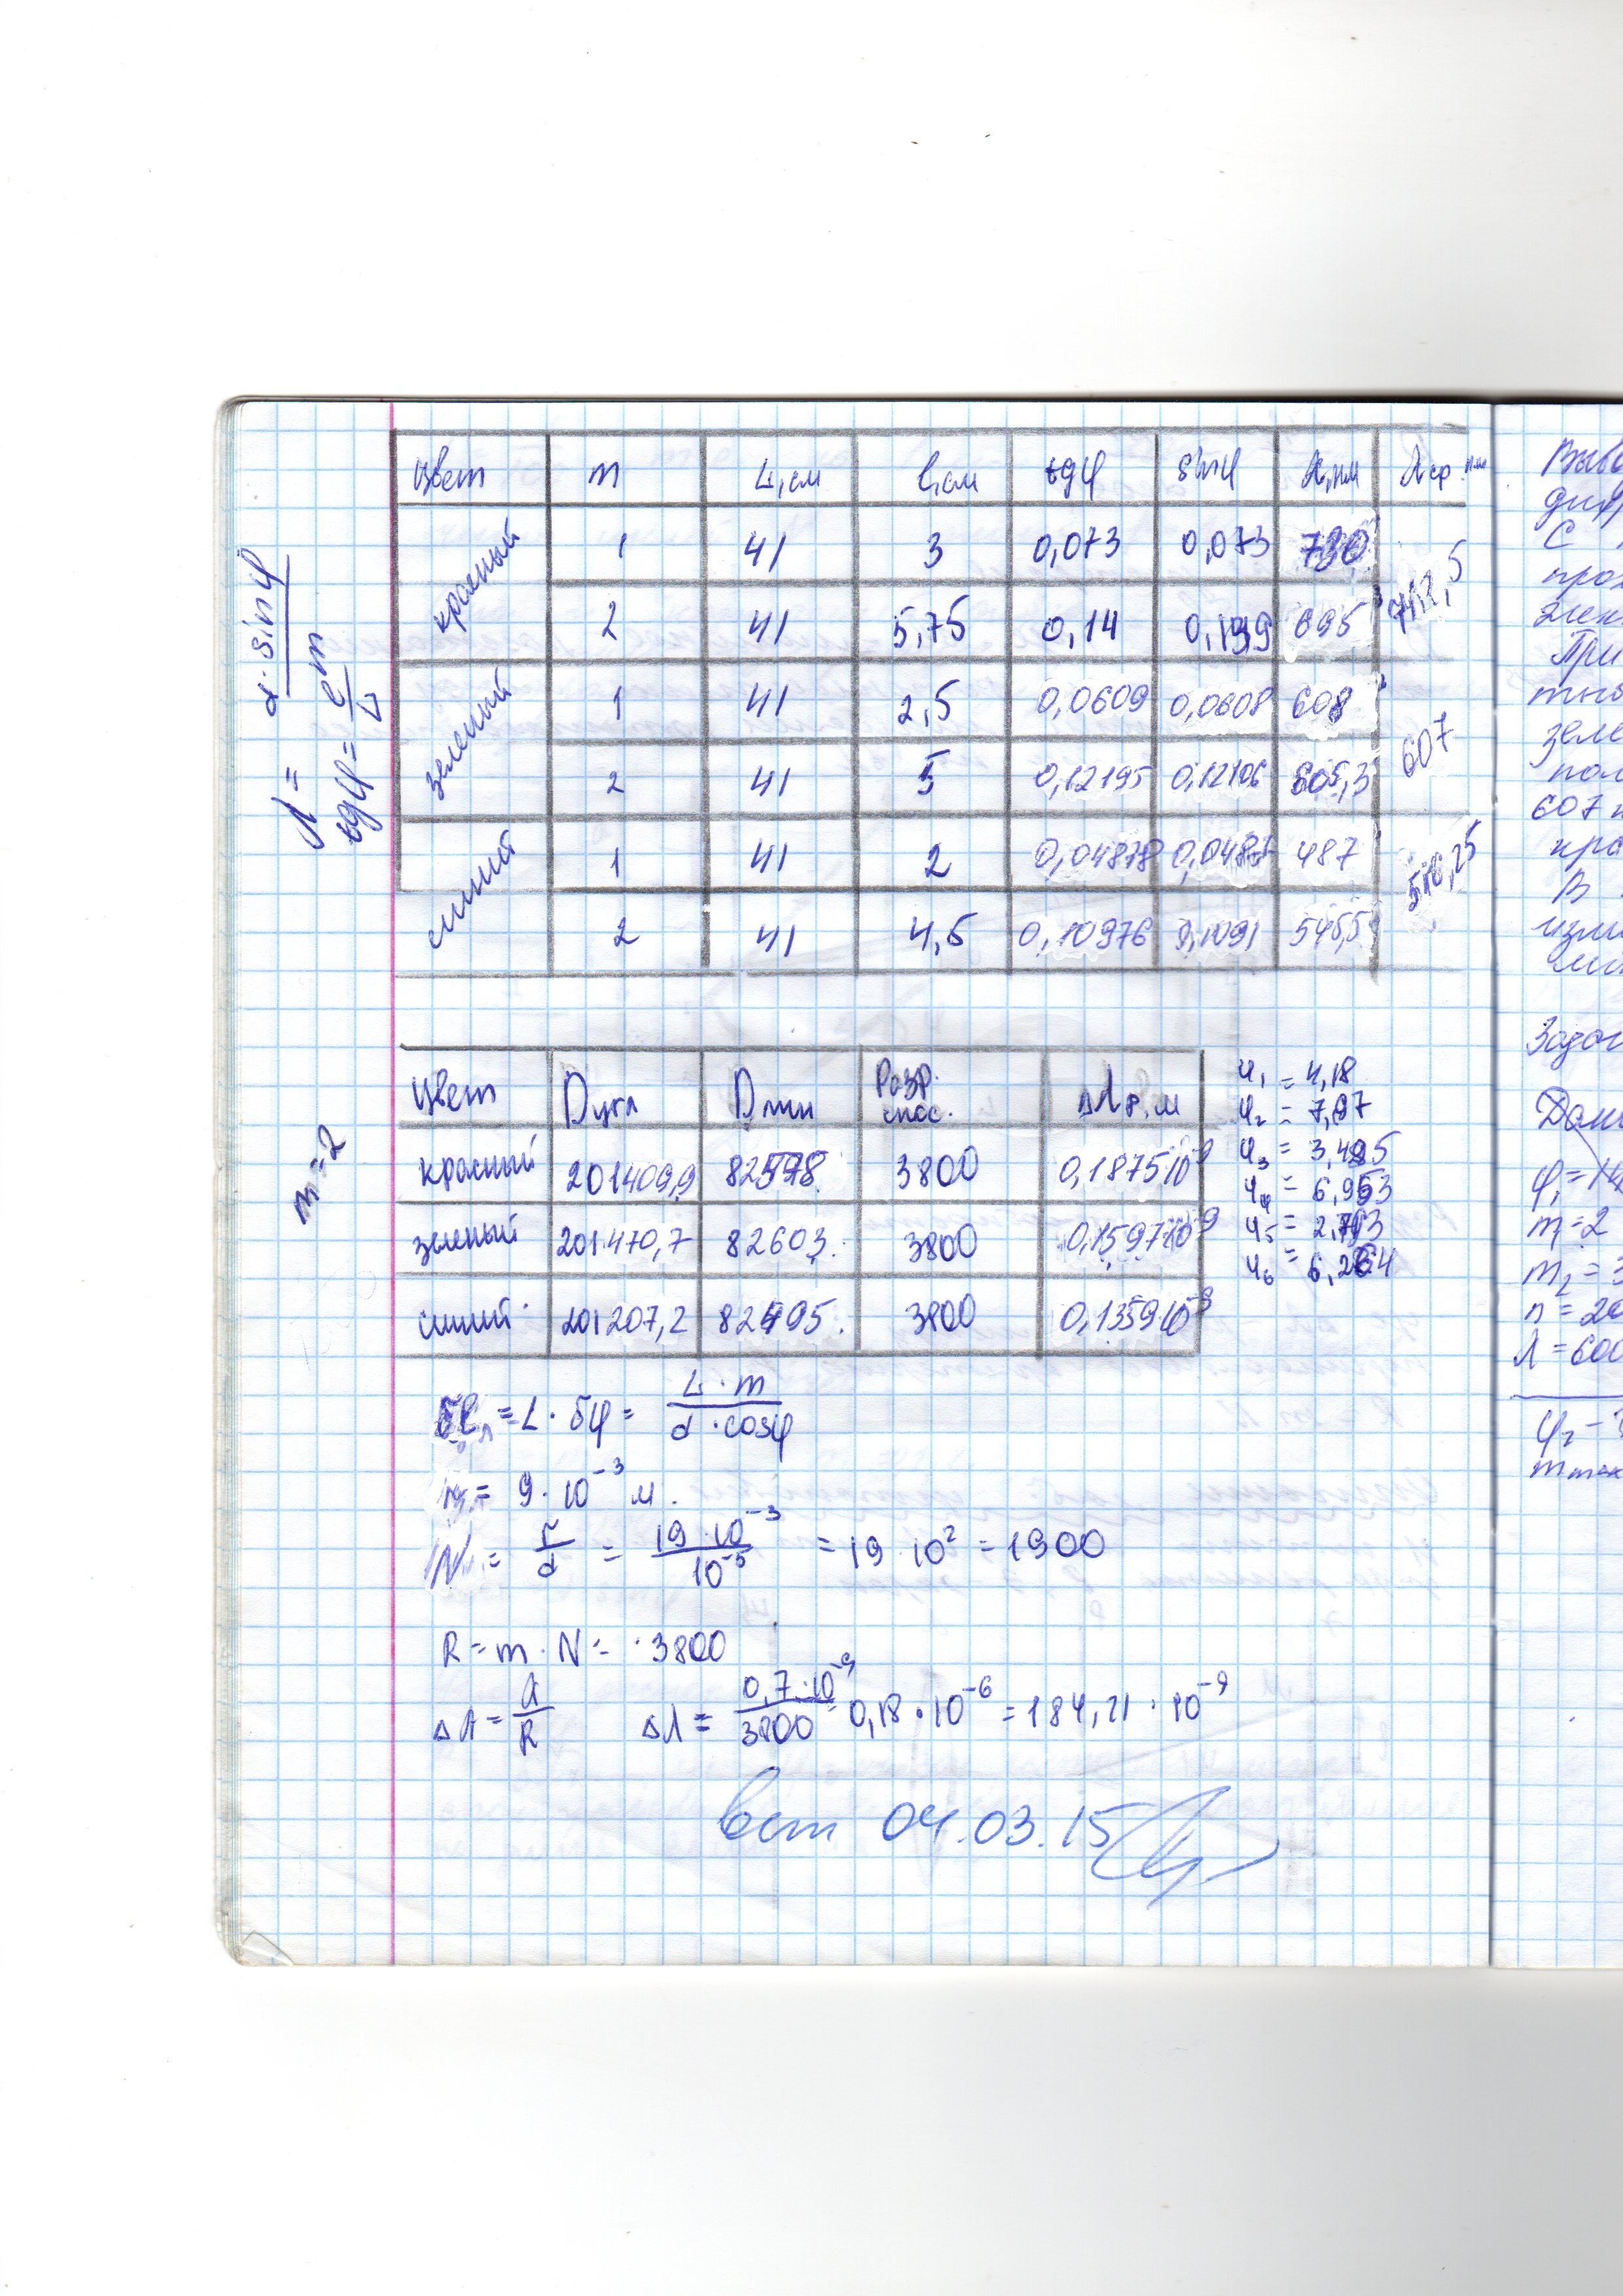 Цвет m L, см l, см tgφ sinφ λ, нм λср. нм
красный 1 41 3 0,073 0,073 730
2 41 5,75 0,14 0,139 695 712,5
зеленый 1 41 2,5 0,0609 0,0608 608
2 41 5 0,12195 0,12106 605,3 607
синий 1 41 2 0,04878 0,0487 487
2 41 4,5 0,10976 0,1091 545,5 516,25
λ = d · sinφ / m
tgφ = l / L
m = 2
Цвет Dугл Dлин Разр. спос. Δλр, м
красный 201409,9 82578 3800 0,1875 10⁻⁹
зеленый 201470,7 82603 3800 0,1597 10⁻⁹
синий 201207,2 82495 3800 0,1359 10⁻⁹
φ₁ = 4,18
φ₂ = 7,97
φ₃ = 3,485
φ₄ = 6,953
φ₅ = 2,793
φ₆ = 6,264
= L · δφ = L · m / d · cosφ
= 9 · 10⁻³ м.
N = r / d = 19 · 10⁻³ / 10⁻⁵ = 19 10² = 1900
R = m · N = 3800
Δλ = λ / R Δλ = 0,7 · 10⁻⁹ / 3800 = 0,18 · 10⁻⁶ = 184,21 · 10⁻⁹
04.03.15
Выво
диф
С
про
При
зеле
пол
607 н
кра
В
изм
Задач
Дано
φ₁ = 14
m₁ = 2
m₂ = 3
n = 20
λ = 600
φ₂ –
m max